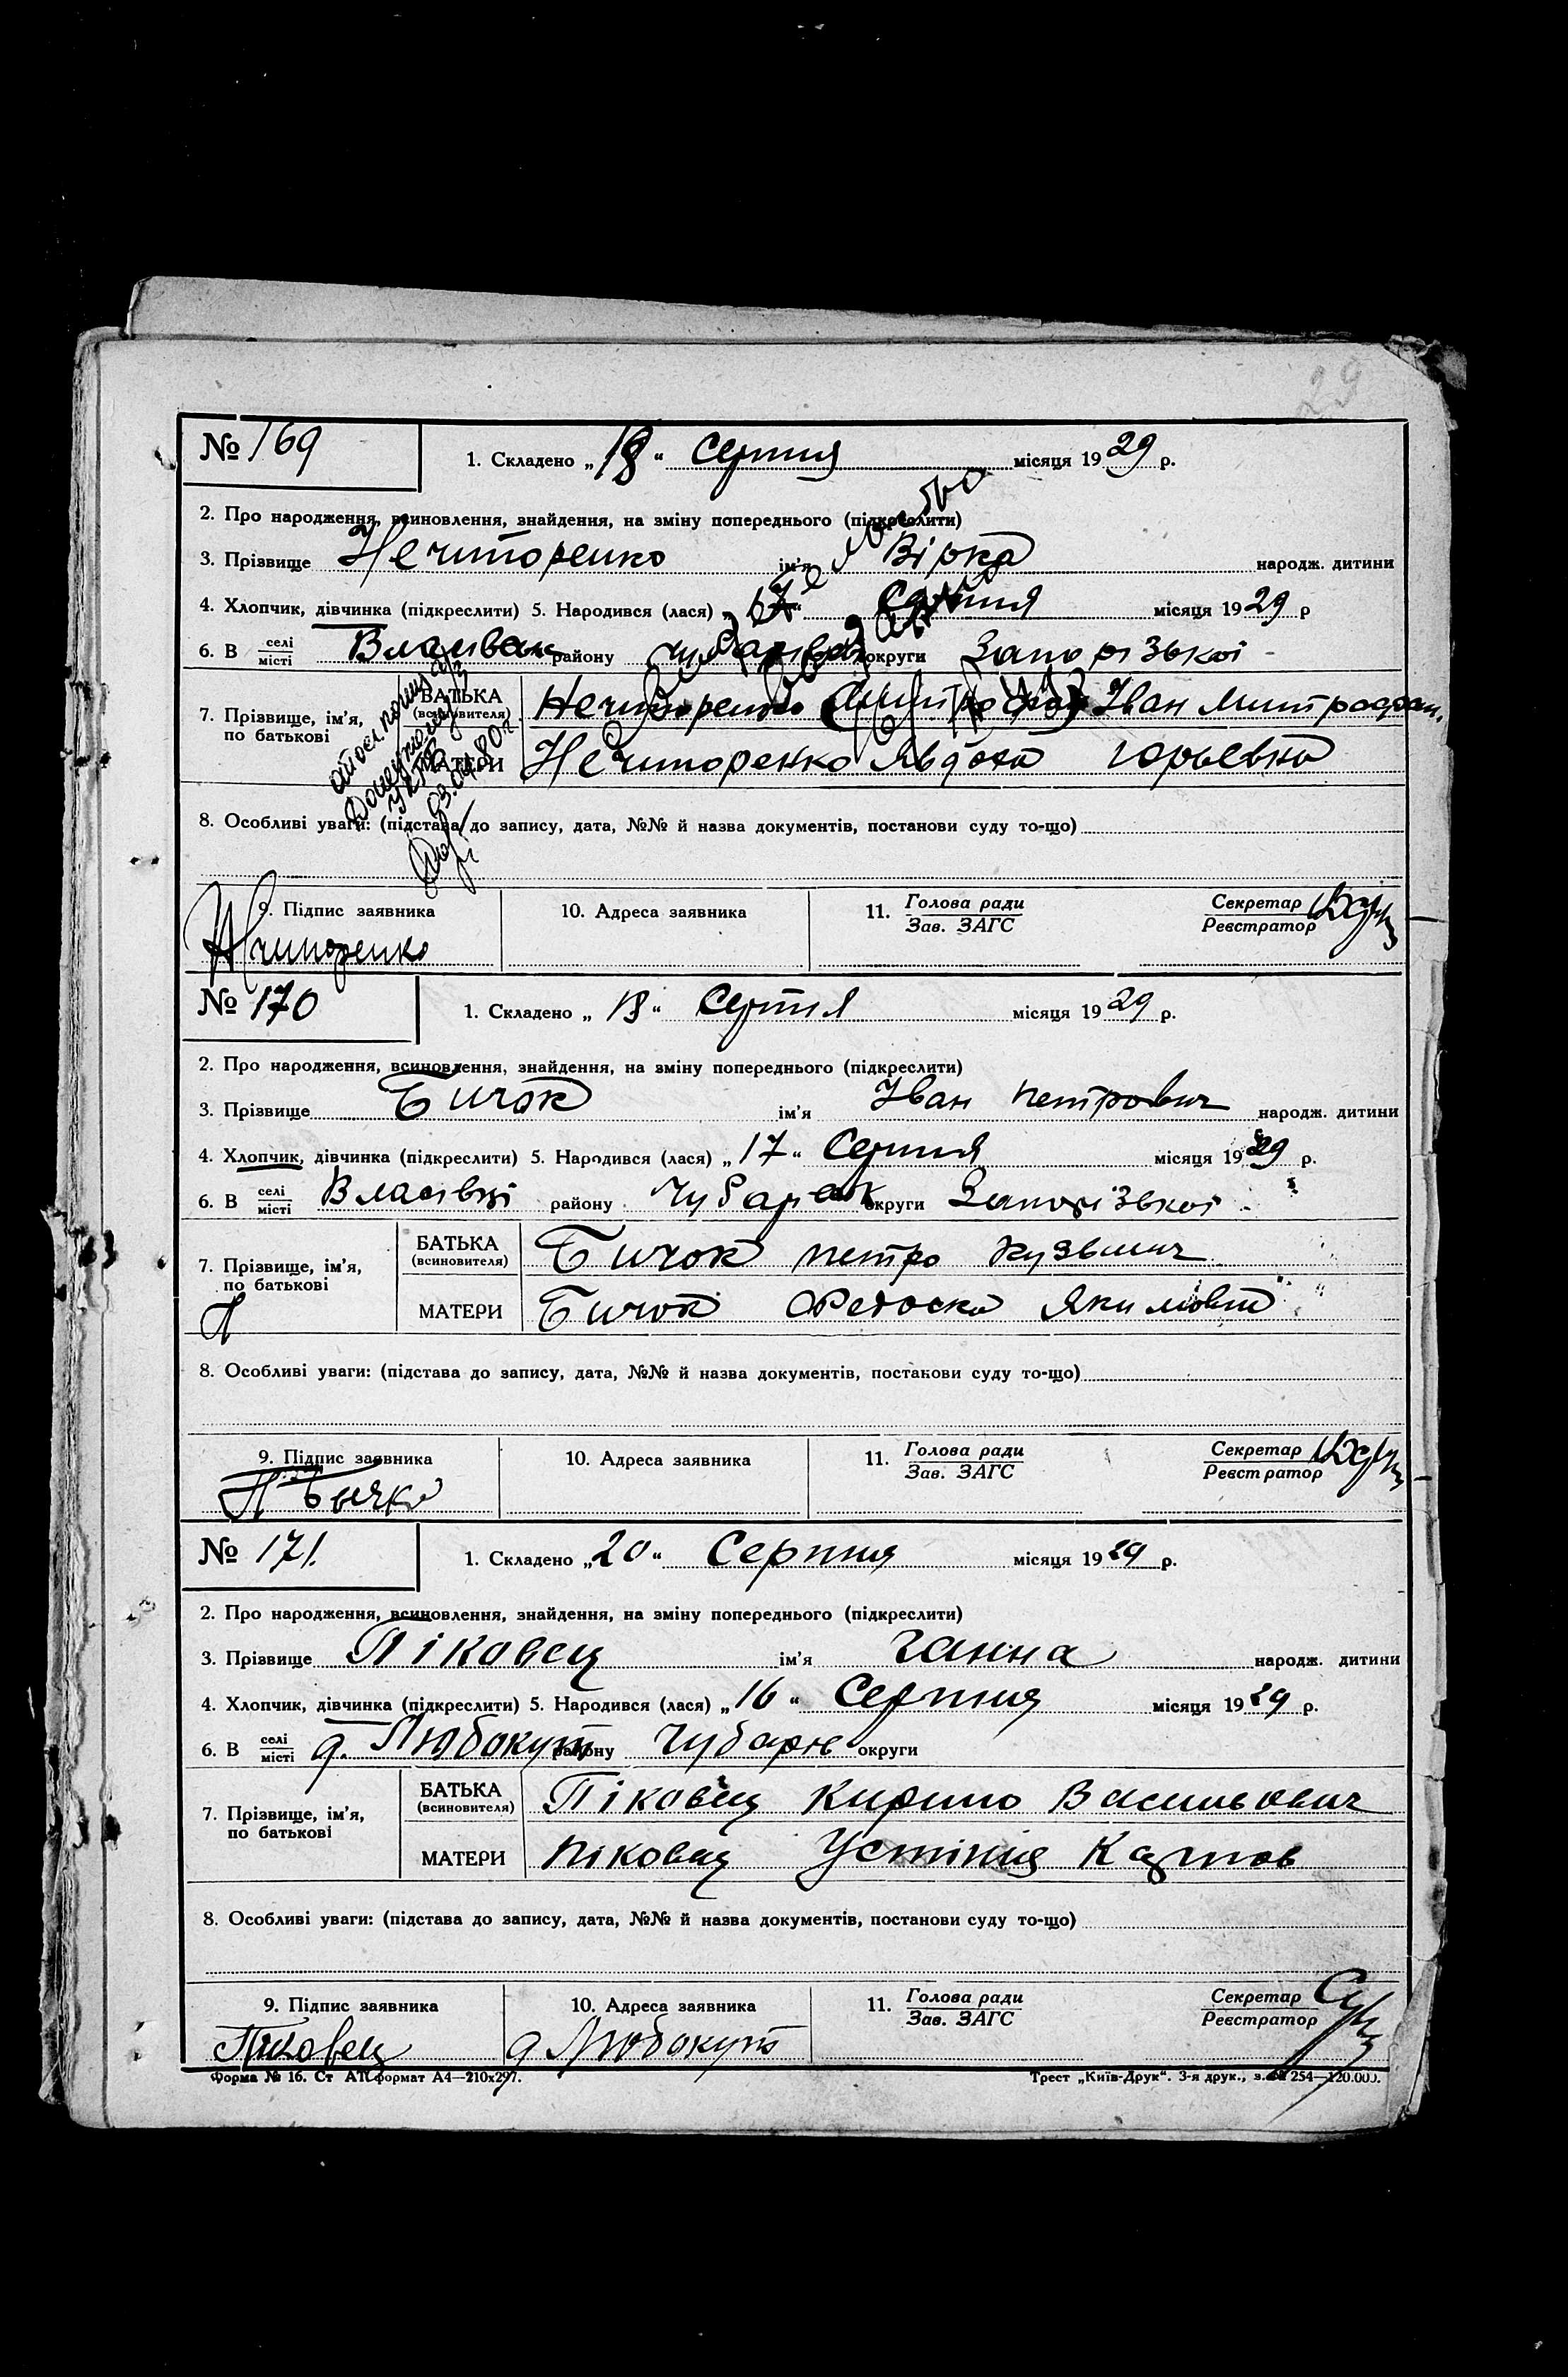 29
№ 169 1. Складено „18“ Серпня місяця 1929 р.
2. Про народження, всиновлення, знайдення, на зміну попереднього (підкреслити)
3. Прізвище Нечипоренко ім'я Вірка народж. дитини
4. Хлопчик, дівчинка (підкреслити) 5. Народився (лася) „17“ Серпня місяця 1929 р
6. В селі/місті району округи Запорізької
7. Прізвище, ім'я, по батькові БАТЬКА (всиновителя) Нечипоренко Іван Митрофан.
МАТЕРИ Нечипоренко Явдоха Юрьевна
03.04.80г.
8. Особливі уваги: (підстава до запису, дата, №№ й назва документів, постанови суду то-що)
9. Підпис заявника 10. Адреса заявника 11. Голова ради/Зав. ЗАГС Секретар/Реєстратор
Нечипоренко
№ 170 1. Складено „18“ Серпня місяця 1929 р.
2. Про народження, всиновлення, знайдення, на зміну попереднього (підкреслити)
3. Прізвище Бичок ім'я Іван Петрович народж. дитини
4. Хлопчик, дівчинка (підкреслити) 5. Народився (лася) „17“ Серпня місяця 1929 р.
6. В селі/місті Власівці району Чубарівк округи Запорізької
7. Прізвище, ім'я, по батькові БАТЬКА (всиновителя) Бичок Петро Кузьмич
МАТЕРИ Бичок Федоска Якимовна
8. Особливі уваги: (підстава до запису, дата, №№ й назва документів, постанови суду то-що)
9. Підпис заявника 10. Адреса заявника 11. Голова ради/Зав. ЗАГС Секретар/Реєстратор
№ 171. 1. Складено „20“ Серпня місяця 1929 р.
2. Про народження, всиновлення, знайдення, на зміну попереднього (підкреслити)
3. Прізвище Піковец ім'я Ганна народж. дитини
4. Хлопчик, дівчинка (підкреслити) 5. Народився (лася) „16“ Серпня місяця 1929 р.
6. В селі/місті д. Любокут району Чубарів округи
7. Прізвище, ім'я, по батькові БАТЬКА (всиновителя) Піковец Кирило Васильович
МАТЕРИ Піковец Устінія Карпов
8. Особливі уваги: (підстава до запису, дата, №№ й назва документів, постанови суду то-що)
9. Підпис заявника 10. Адреса заявника 11. Голова ради/Зав. ЗАГС Секретар/Реєстратор
Піковец д Любокут
Форма № 16. Ст АТ. формат А4—210х297. Трест „Київ-Друк“. 3-я друк., з. 254—120.000.